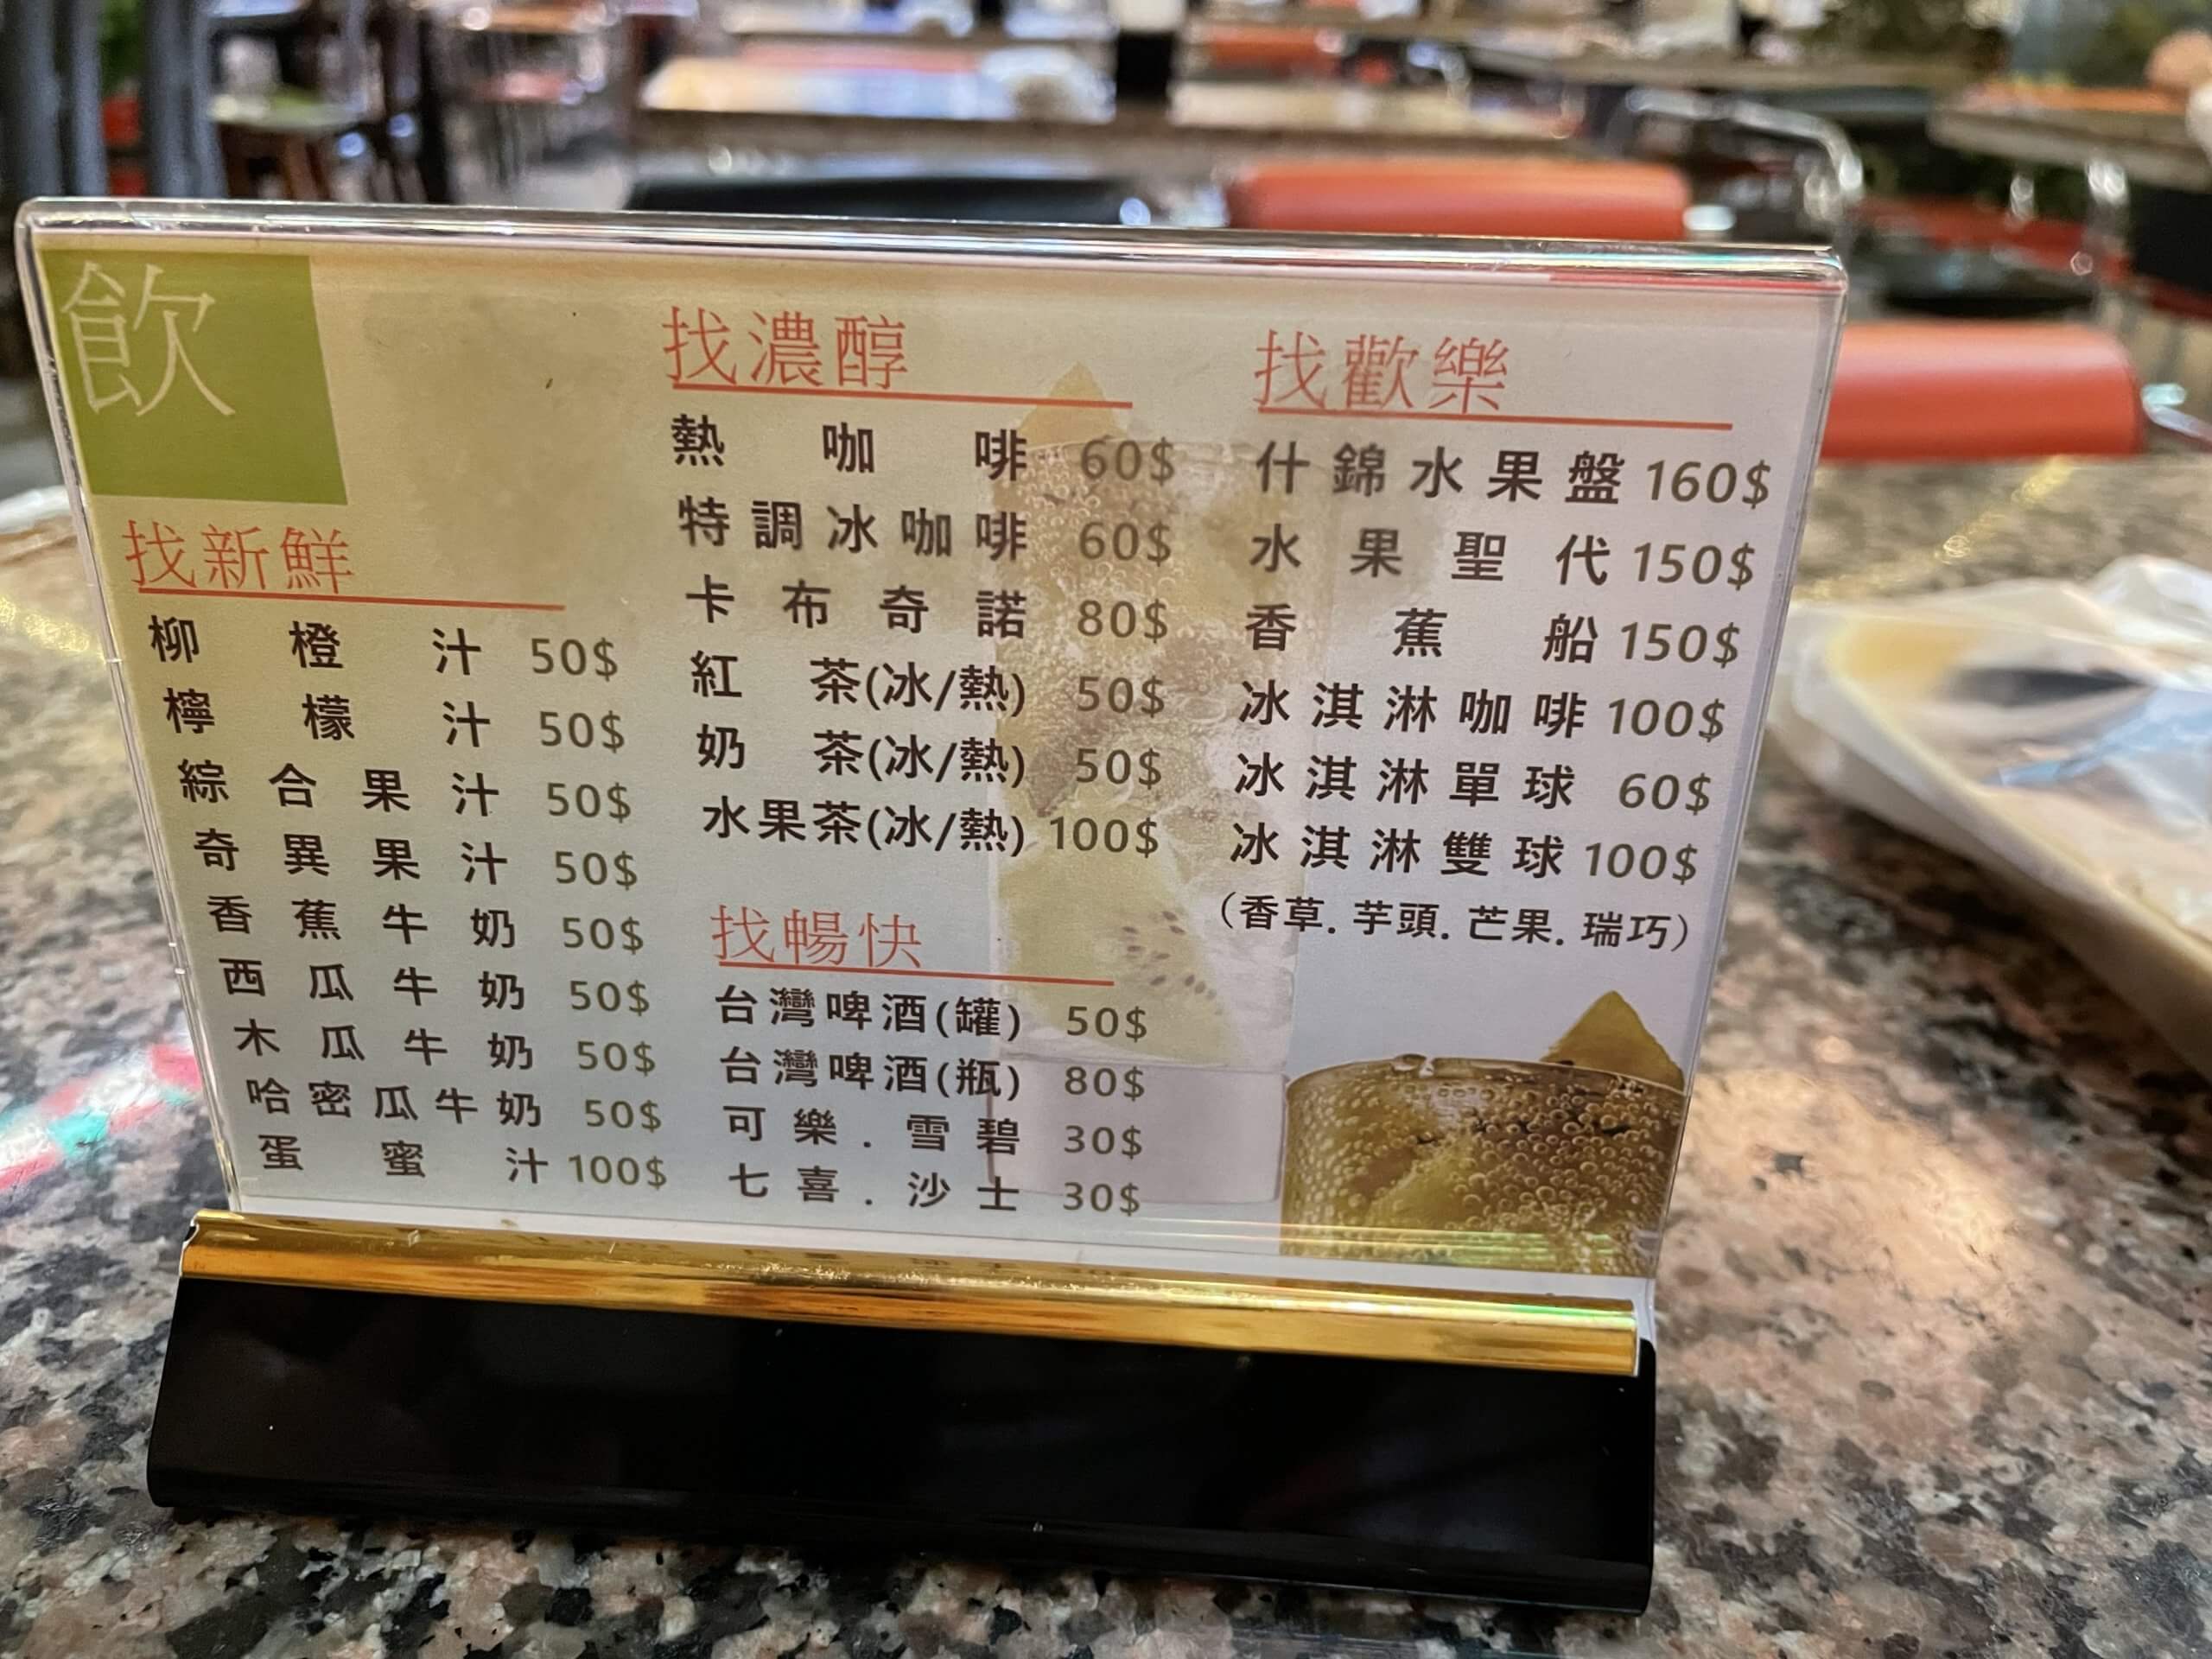 飲
找新鮮
柳橙汁 50$
檸檬汁 50$
綜合果汁 50$
奇異果汁 50$
香蕉牛奶 50$
西瓜牛奶 50$
木瓜牛奶 50$
哈密瓜牛奶 50$
蛋蜜汁 100$
找濃醇
熱咖啡 60$
特調冰咖啡 60$
卡布奇諾 80$
紅茶(冰/熱) 50$
奶茶(冰/熱) 50$
水果茶(冰/熱) 100$
找暢快
台灣啤酒(罐) 50$
台灣啤酒(瓶) 80$
可樂.雪碧 30$
七喜.沙士 30$
找歡樂
什錦水果盤 160$
水果聖代 150$
香蕉船 150$
冰淇淋咖啡 100$
冰淇淋單球 60$
冰淇淋雙球 100$
（香草.芋頭.芒果.瑞巧）